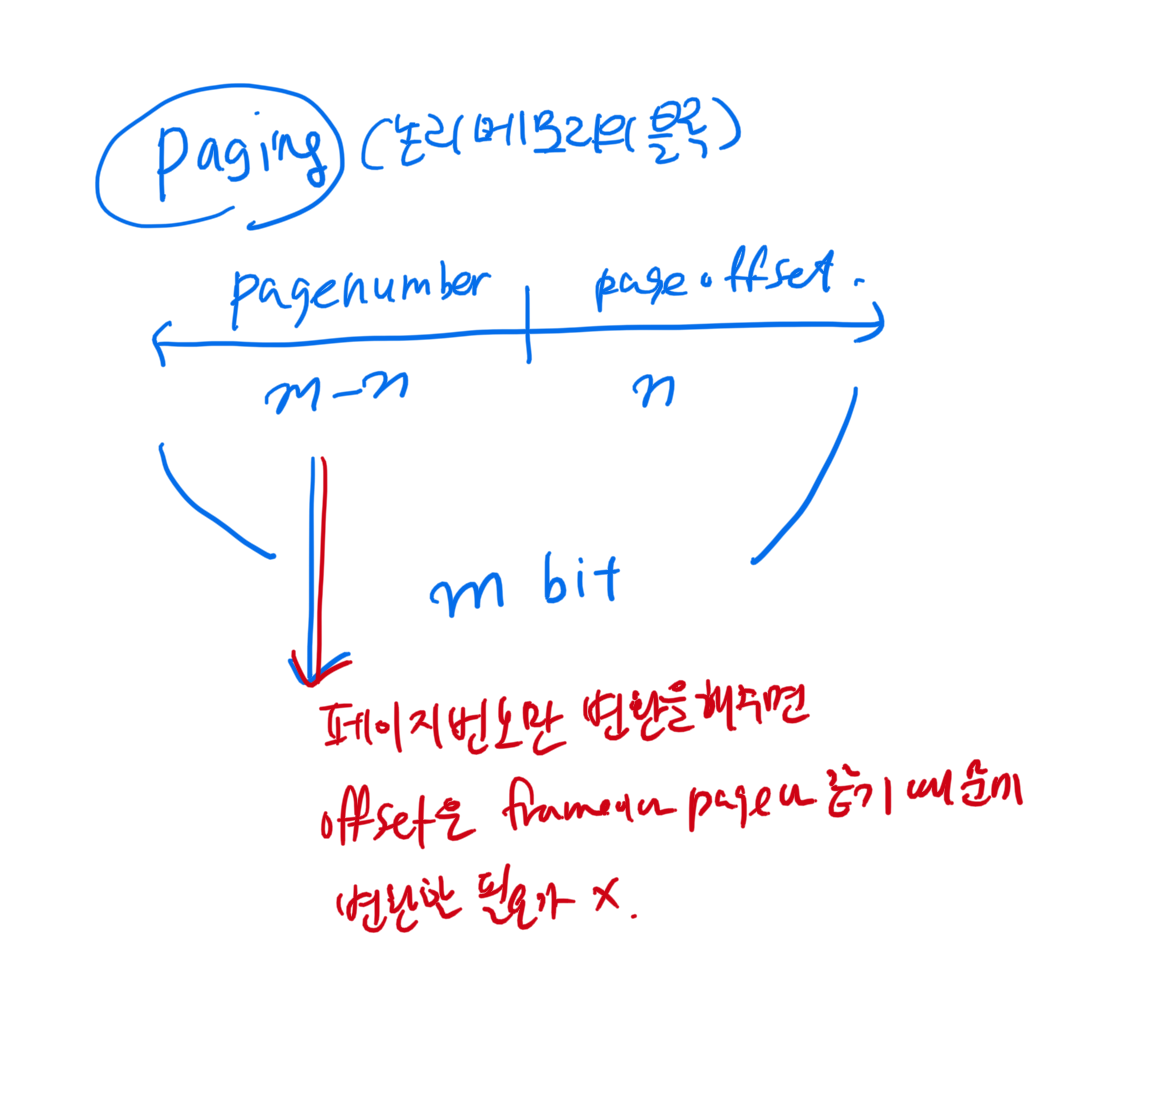 paging (논리 메모리의 블록)
pagenumber page offset.
m-n n
m bit
페이지번호만 변환을해주면
offset은 frame이나 page나 같기 때문에
변환할 필요가 x.